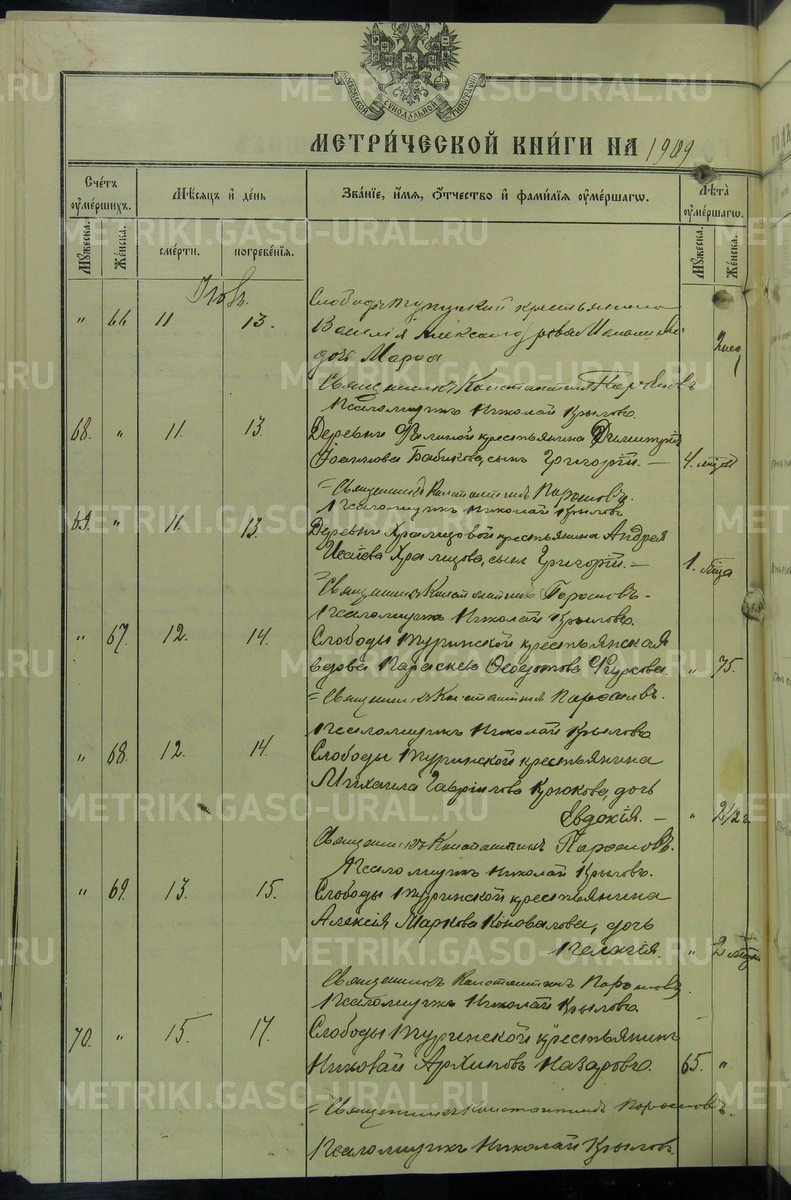 МОСКОВСКОЙ СѴНОДАЛЬНОЙ ТИПОГРАФІИ
МЕТРИ́ЧЕСКОЙ КНИ́ГИ НА 1909
Сче́тъ ᲂу҆ме́ршихъ.
Мѣ́сяцъ и҆ де́нь
Зва́нїе, и҆́мѧ, ѻ҆́тчество и҆ фами́лїѧ ᲂу҆ме́ршагѡ.
Лѣ́та ᲂу҆ме́ршагѡ.
Мꙋ́жеска.
Же́нска.
сме́рти.
погребе́нїѧ.
Мꙋ́жеска.
Же́нска.
Іюль.
Слободы Туринской крестьянина
" 66 11 13.
Василія Александрова
дочь Марѳа 2 нед
Священникъ Константинъ Парѳеновъ
Псаломщикъ Николай Крыловъ.
68. " 11. 13. Деревни крестьянина Димитрія
Іоаннова Бабикова, сынъ Григорій. — 4. мѣс
Священникъ Константинъ Парѳеновъ.
Псаломщикъ Николай Крыловъ
69. " 11. 13 Деревни Храмцовой крестьянина Андрея
Исаева Храмцова, сынъ Григорій. — 1. мѣс
Священникъ Константинъ Парѳеновъ
Псаломщикъ Николай Крыловъ.
" 67. 12. 14. Слободы Туринской крестьянская
вдова Параскева Ѳеодотова " 75.
Священникъ Константинъ Парѳеновъ.
Псаломщикъ Николай Крыловъ
" 68. 12. 14. Слободы Туринской крестьянина
Михаила Гаврилова Крюкова, дочь
Евдокія. — " 2 1/2 г
Священникъ Константинъ Парѳеновъ.
Псаломщикъ Николай Крыловъ.
" 69. 13. 15. Слободы Туринской крестьянина
Алексія Маркова Коновалова, дочь
Пелагія. " 2 мѣс
Священникъ Константинъ Парѳеновъ.
Псаломщикъ Николай Крыловъ.
70. " 15. 17. Слободы Туринской крестьянинъ
Николай Архиповъ Назаровъ. 65. "
Священникъ Константинъ Парѳеновъ.
Псаломщикъ Николай Крыловъ.
METRIKI.GASO-URAL.RU